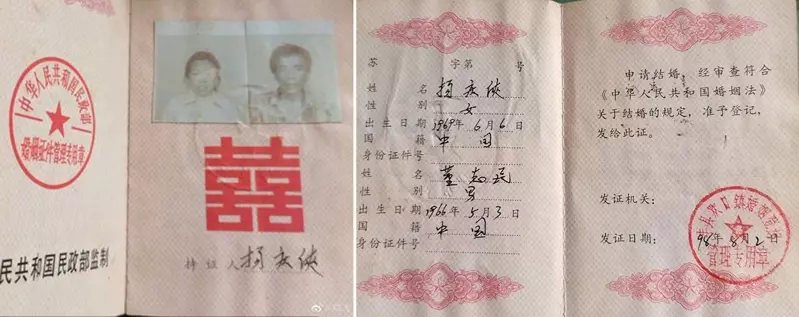 中华人民共和国民政部
婚姻证件管理专用章
民共和国民政部监制
囍
持证人 杨庆侠
苏 字第 号
姓 名 杨庆侠
性 别 女
出生日期 1969年6月6日
国 籍 中国
身份证件号
姓 名 董志民
性 别 男
出生日期 1966年5月3日
国 籍 中国
身份证件号
申请结婚，经审查符合
《中华人民共和国婚姻法》
关于结婚的规定，准予登记，
发给此证。
发证机关：
管理专用章
发证日期： 98年8月2日